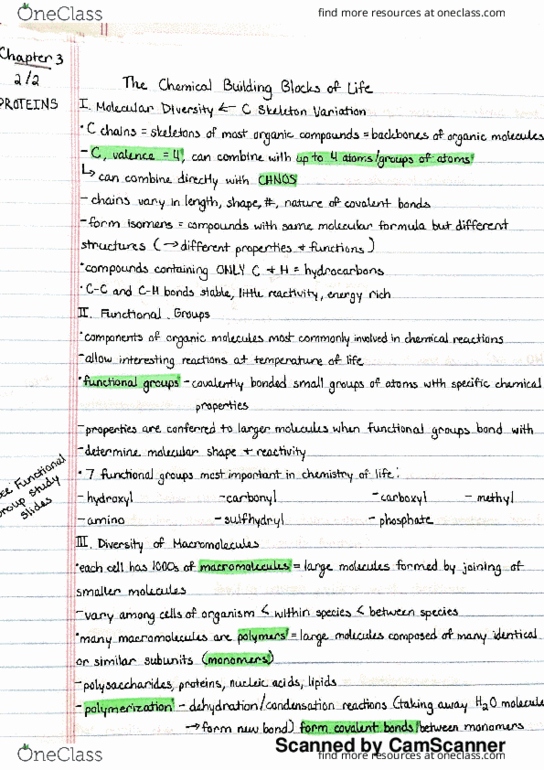 OneClass
find more resources at oneclass.com
Chapter 3
2/2
PROTEINS
The Chemical Building Blocks of Life
I. Molecular Diversity ← C Skeleton Variation
• C chains = skeletons of most organic compounds = backbones of organic molecules
- C, valence = 4, can combine with up to 4 atoms/groups of atoms
↳ can combine directly with CHNOS
- chains vary in length, shape, #, nature of covalent bonds
- form isomers = compounds with same molecular formula but different
structures (→ different properties + functions)
• compounds containing ONLY C + H = hydrocarbons
• C-C and C-H bonds stable, little reactivity, energy rich
II. Functional Groups
• components of organic molecules most commonly involved in chemical reactions
- allow interesting reactions at temperature of life
• functional groups - covalently bonded small groups of atoms with specific chemical
properties
- properties are conferred to larger molecules when functional groups bond with
- determine molecular shape + reactivity
• 7 functional groups most important in chemistry of life:
- hydroxyl - carbonyl - carboxyl - methyl
- amino - sulfhydryl - phosphate
Functional
Group study
slides
III. Diversity of Macromolecules
• each cell has 1000s of macromolecules = large molecules formed by joining of
smaller molecules
- vary among cells of organism < within species < between species
• many macromolecules are polymers = large molecules composed of many identical
or similar subunits (monomers)
- polysaccharides, proteins, nucleic acids, lipids
- polymerization - dehydration/condensation reactions (taking away H2O molecule
→ form new bond) form covalent bonds between monomers
Scanned by CamScanner
OneClass
find more resources at oneclass.com